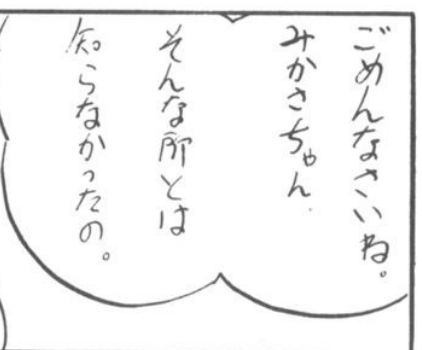 ごめんなさいね。
みかさちゃん.
そんな所とは
知らなかったの。